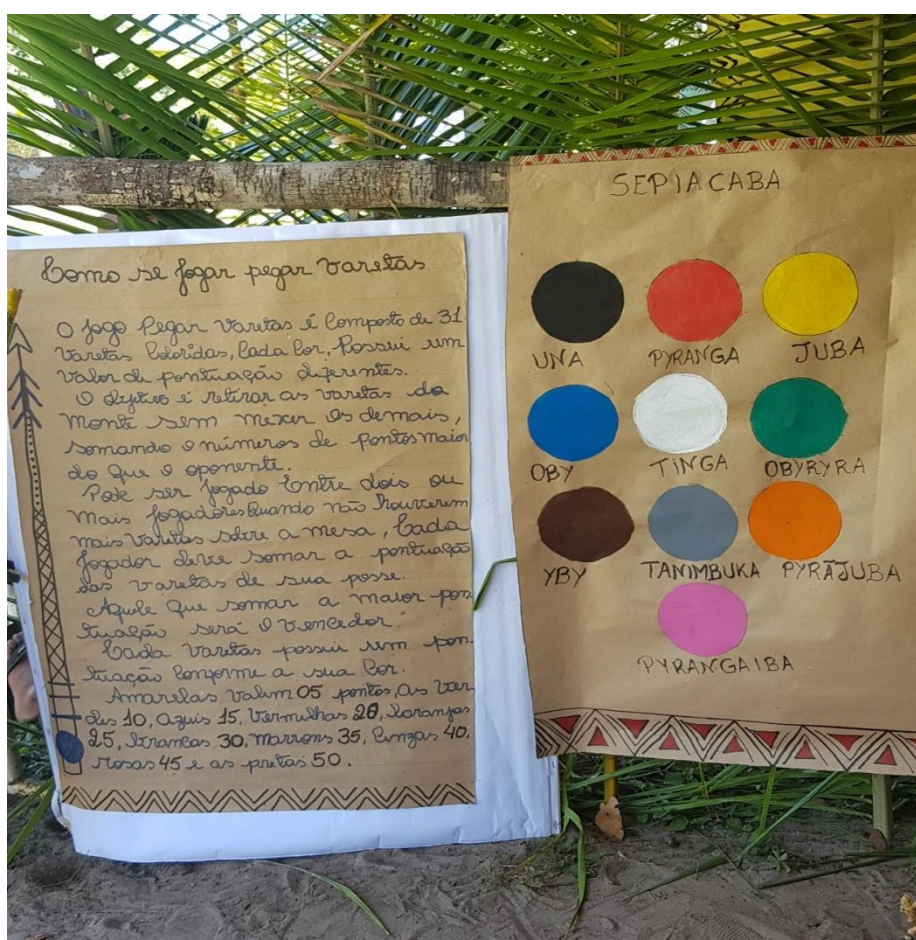 Como se jogar pegar varetas
O jogo Pegar Varetas é Composto de 31
Varetas Coloridas, Cada Cor, Possui um
Valor de pontuação diferentes.
O objetivo é retirar as varetas do
monte sem mexer os demais,
somando o números de pontos maior
do que o oponente.
Pode ser jogado Entre dois ou
mais jogadores Quando não houverem
mais Varetas sobre a mesa, Cada
jogador deve somar a pontuação
das varetas de sua posse.
Aquele Que somar a maior pon
tuação será o vencedor.
Cada Varetas possui um pon
tuação Conforme a sua Cor.
Amarelas Valem 05 pontos, As Ver
des 10, azuis 15, Vermelhas 20, Laranjas
25, Brancas 30, Marrons 35, Cinzas 40,
rosas 45 e as pretas 50.
SEPIACABA
UNA PYRANGA JUBA
OBY TINGA OBYRYRA
YBY TANIMBUKA PYRÃJUBA
PYRANGAIBA